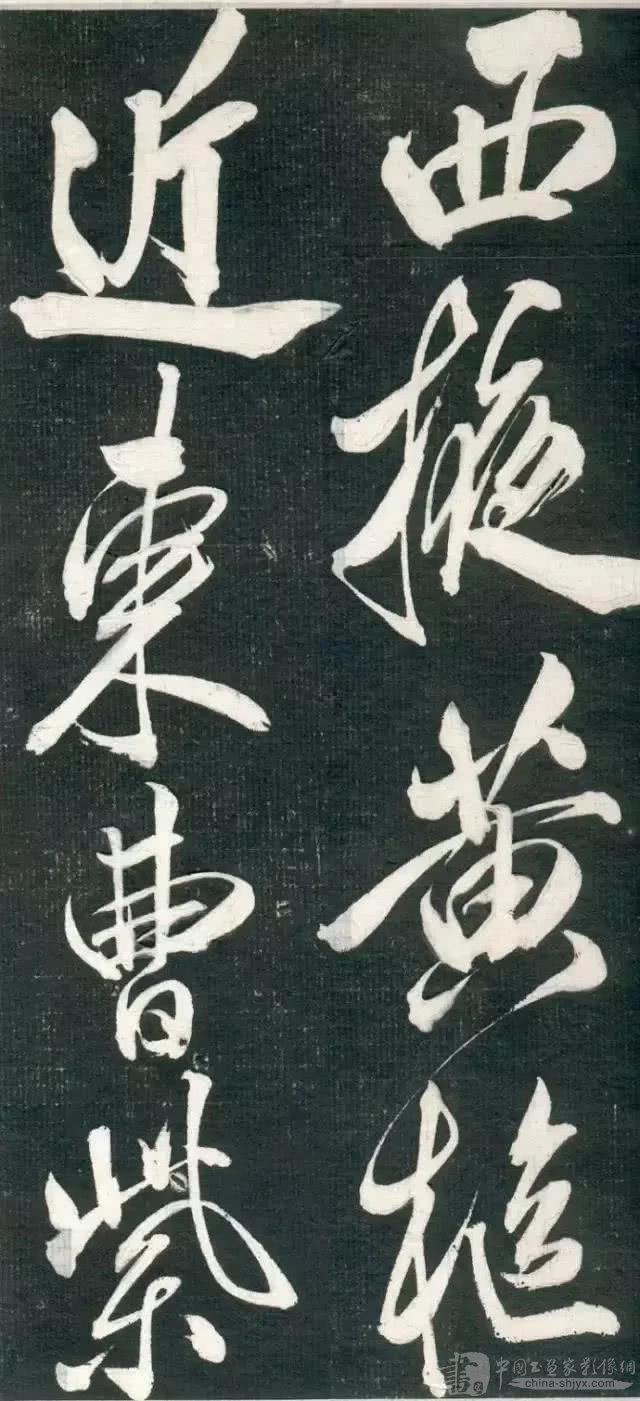 西掖黄樞
近東曹紫
中国书画家影像網
china-shjyx.com